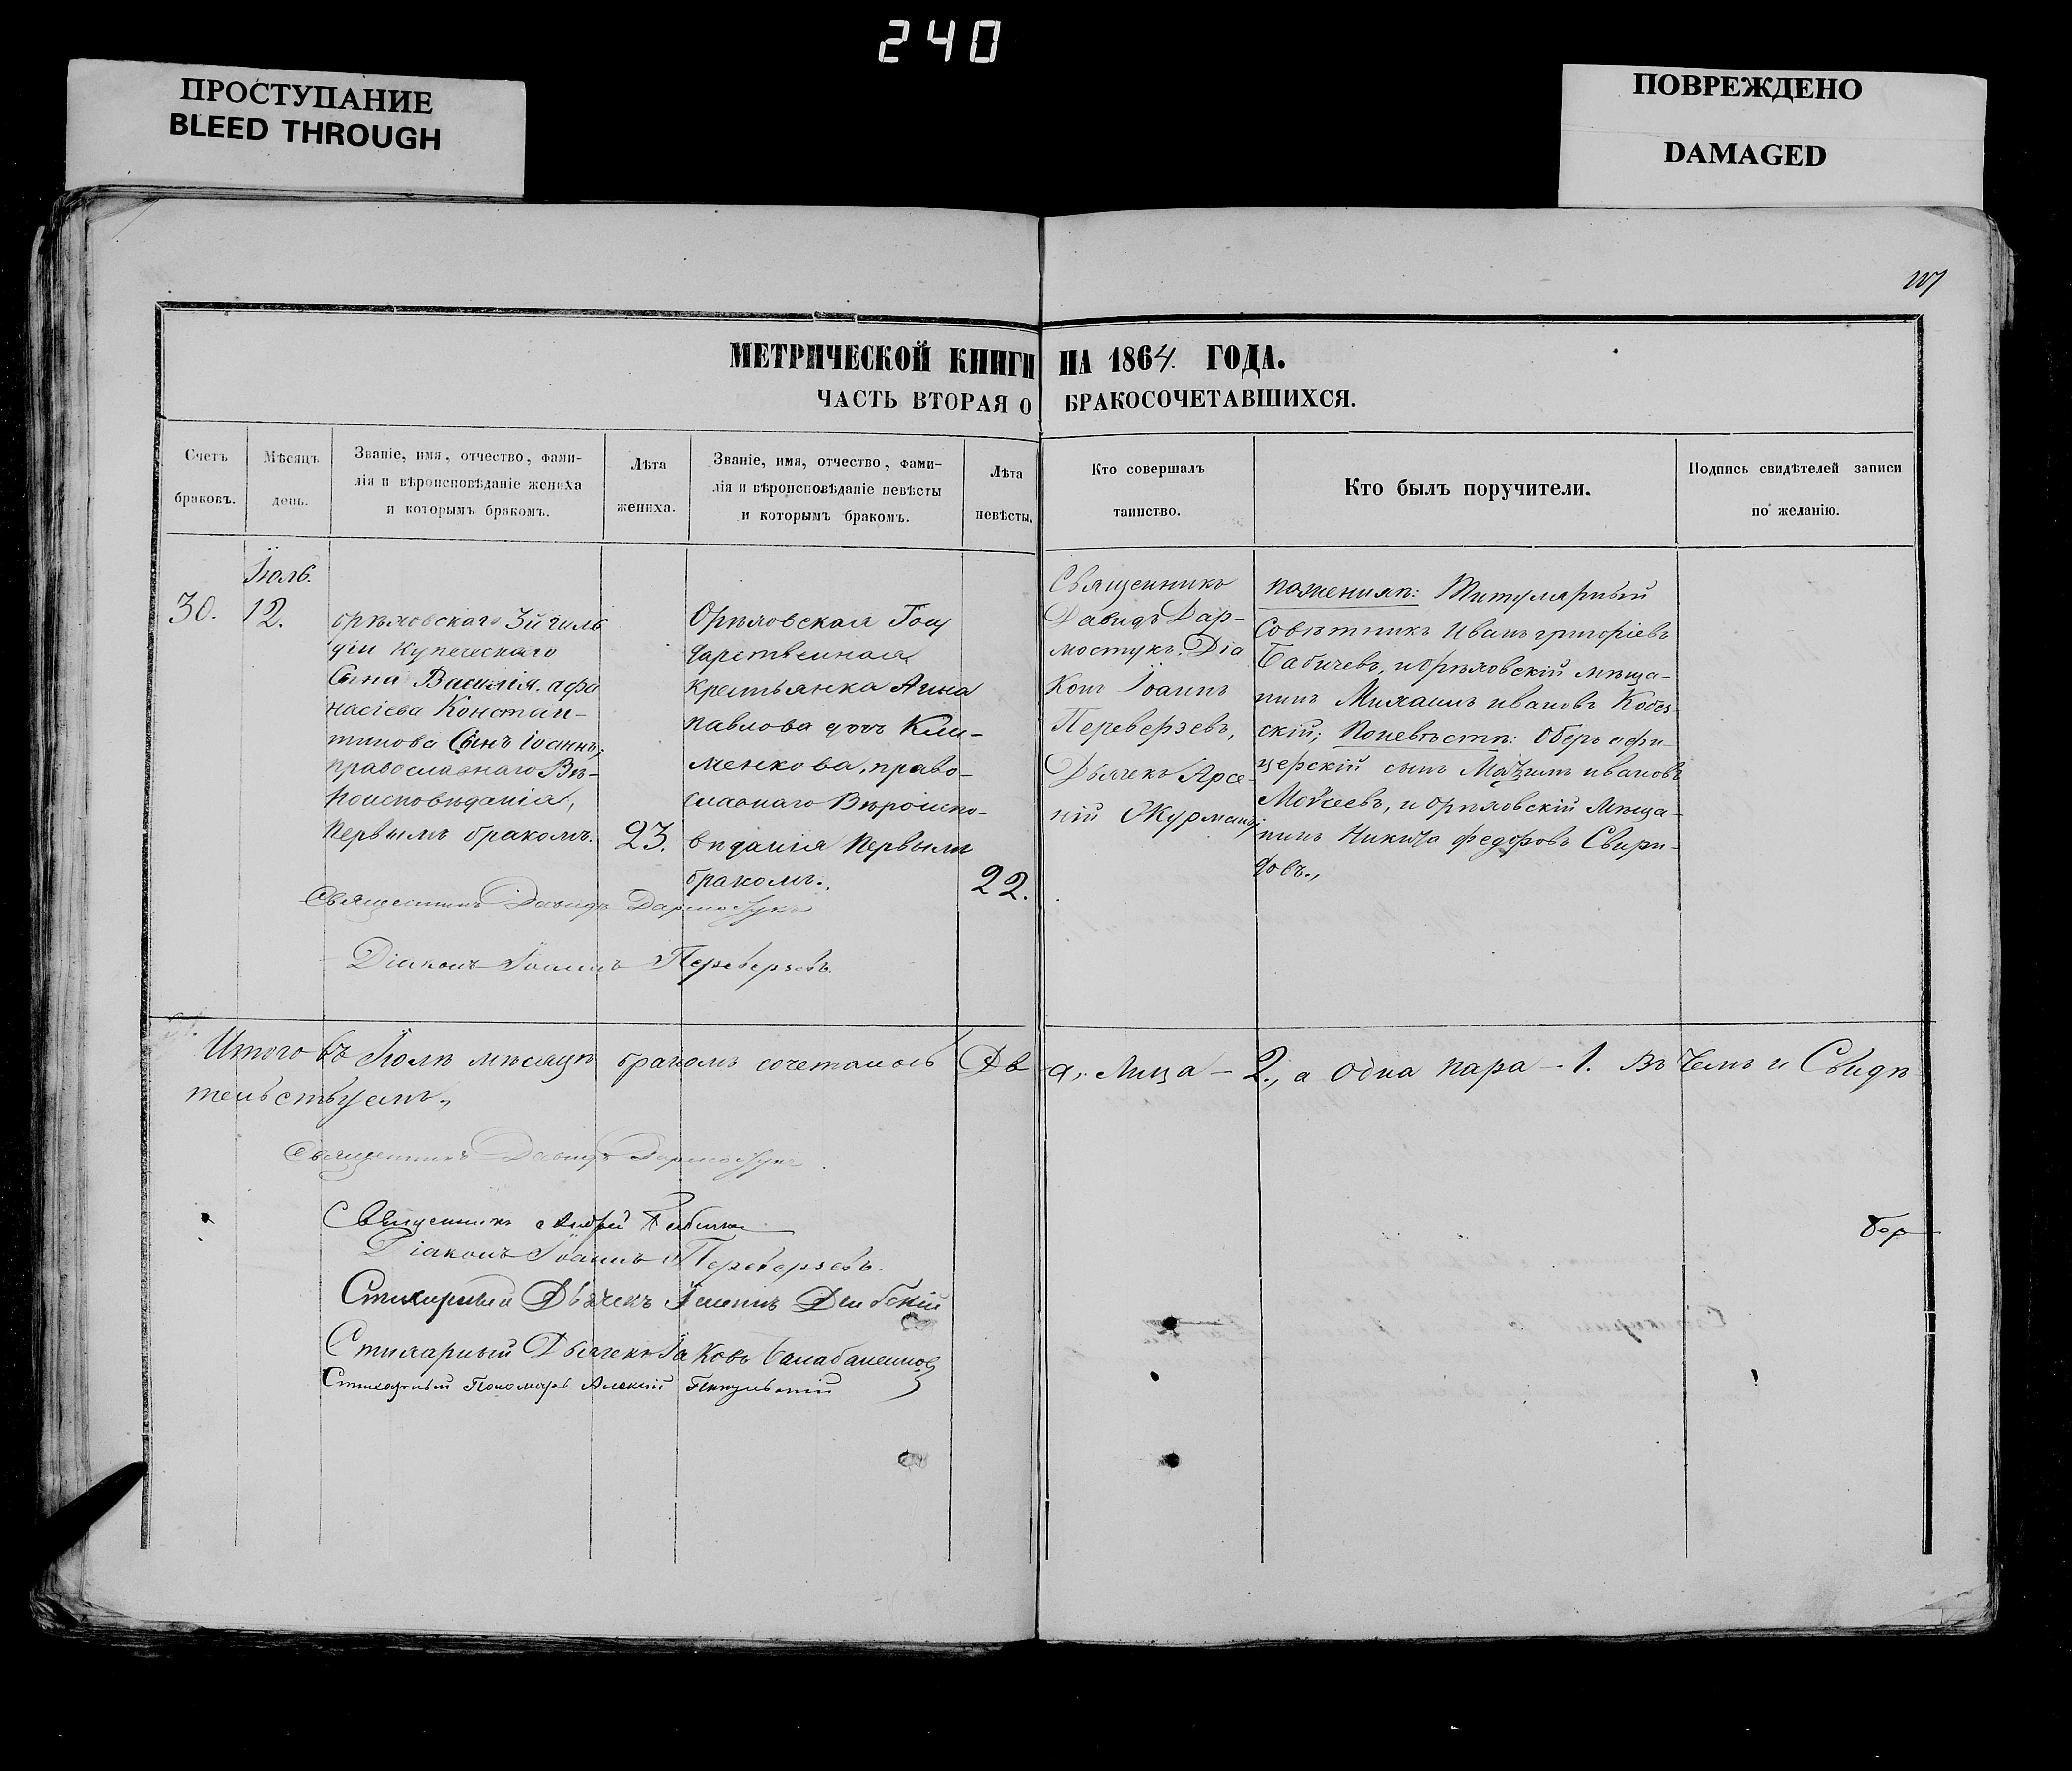 240
ПРОСТУПАНИЕ
BLEED THROUGH
ПОВРЕЖДЕНО
DAMAGED
МЕТРИЧЕСКОЙ КНИГИ НА 1864. ГОДА.
ЧАСТЬ ВТОРАЯ О БРАКОСОЧЕТАВШИХСЯ.
Счетъ
браковъ.
Мѣсяцъ
день.
Званіе, имя, отчество, фами-
лія и вѣроисповѣданіе жениха
и которымъ бракомъ.
Лѣта
жениха.
Званіе, имя, отчество, фами-
лія и вѣроисповѣданіе невѣсты
и которымъ бракомъ.
Лѣта
невѣсты.
Кто совершалъ
таинство.
Кто былъ поручители.
Подпись свидѣтелей записи
по желанію.
30.
Іюль.
12.
Орѣховскаго 3й гиль
діи Купеческаго
Сына Василія Афа
насіева Констан-
тинова Сынъ Іоаннъ,
православнаго Вѣ-
роисповѣданія,
первымъ бракомъ.
23.
Орѣховская Госу
дарственная
крестьянка Анна
Павлова дочь Кли-
менкова, право-
славнаго Вѣроиспо-
вѣданія первымъ
бракомъ.
22.
Священникъ
Давидъ Дар-
мостукъ. Діа
конъ Іоаннъ
Переверзевъ,
Дьячекъ Арсе-
ній
по женихѣ: Титулярный
Совѣтникъ Иванъ Григоріевъ
Бабичевъ, и Орѣховскій мѣща-
нинъ Михаилъ Ивановъ
скій; по невѣстѣ: Оберъ офи-
церскій сынъ Максимъ Ивановъ
Мойсеевъ, и Орѣховскій Мѣща-
нинъ Никита Федоровъ Свири-
довъ.,
Священникъ Давидъ Дармостукъ
Діаконъ Іоаннъ Переверзевъ.
Итого въ Іюлѣ мѣсяцѣ бракомъ сочеталось Два, Лица – 2., а одна пара – 1. Въ чемъ и Свидѣ
тельствуемъ.,
Священникъ Давидъ Дармостукъ
Священникъ Андрей
Діаконъ Іоаннъ Переверзевъ.
Стихарный Дьячекъ
Стихарный Дьячекъ Іаковъ
Стихарный Пономарь Алексій